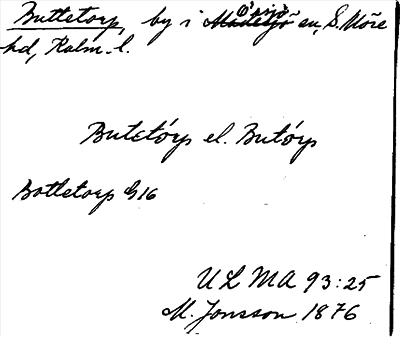 Buttetorp, by i Madesjö sn, S. Möre
hd, Kalm. l.
Butetórp el. Butórp
Bottetorp G16
ULMA 93:25
M. Jonsson 1876